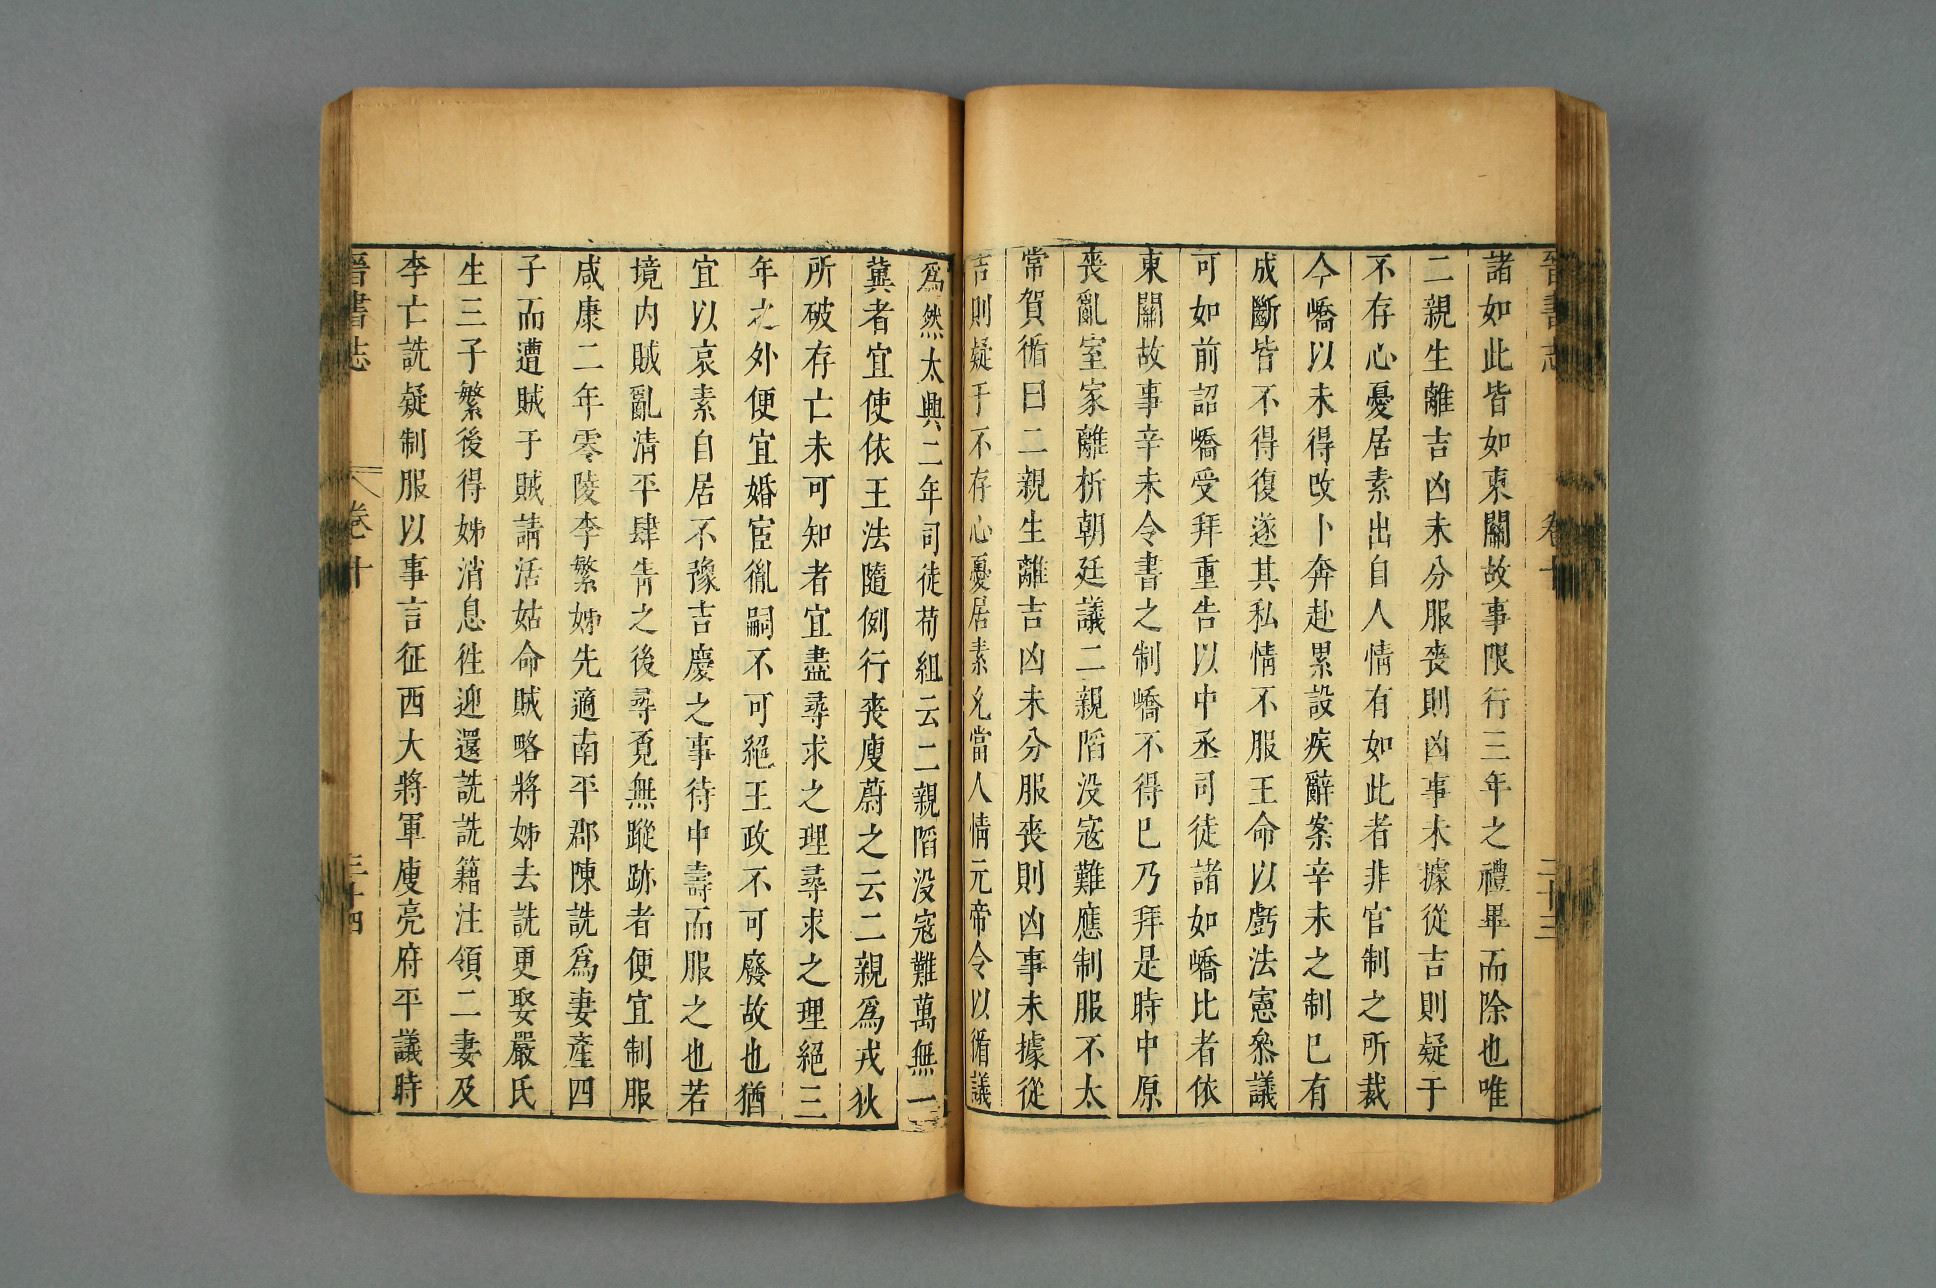 晉書志
卷十
二十三
諸如此皆如東關故事限行三年之禮畢而除也唯
二親生離吉凶未分服喪則凶事未據從吉則疑于
不存心憂居素出自人情有如此者非官制之所裁
今嶠以未得改卜奔赴累設疾辭案辛未之制已有
成斷皆不得復遂其私情不服王命以虧法憲叅議
可如前詔嶠受拜重告以中丞司徒諸如嶠比者依
東關故事辛未令書之制嶠不得已乃拜是時中原
喪亂室家離析朝廷議二親陷没寇難應制服不太
常賀循曰二親生離吉凶未分服喪則凶事未據從
吉則疑于不存心憂居素允當人情元帝令以循議
爲然太興二年司徒荀組云二親陷没寇難萬無一
兾者宜使依王法隨例行喪庾蔚之云二親爲戎狄
所破存亡未可知者宜盡尋求之理尋求之理絕三
年之外便宜婚宦胤嗣不可絕王政不可廢故也猶
宜以哀素自居不豫吉慶之事待中壽而服之也若
境内賊亂清平肆眚之後尋覔無蹤跡者便宜制服
咸康二年零陵李繁姊先適南平郡陳詵爲妻產四
子而遭賊于賊請活姑命賊略將姊去詵更娶嚴氏
生三子繁後得姊消息徃迎還詵詵籍注領二妻及
李亡詵疑制服以事言征西大將軍庾亮府平議時
晉書志
卷十
三十四